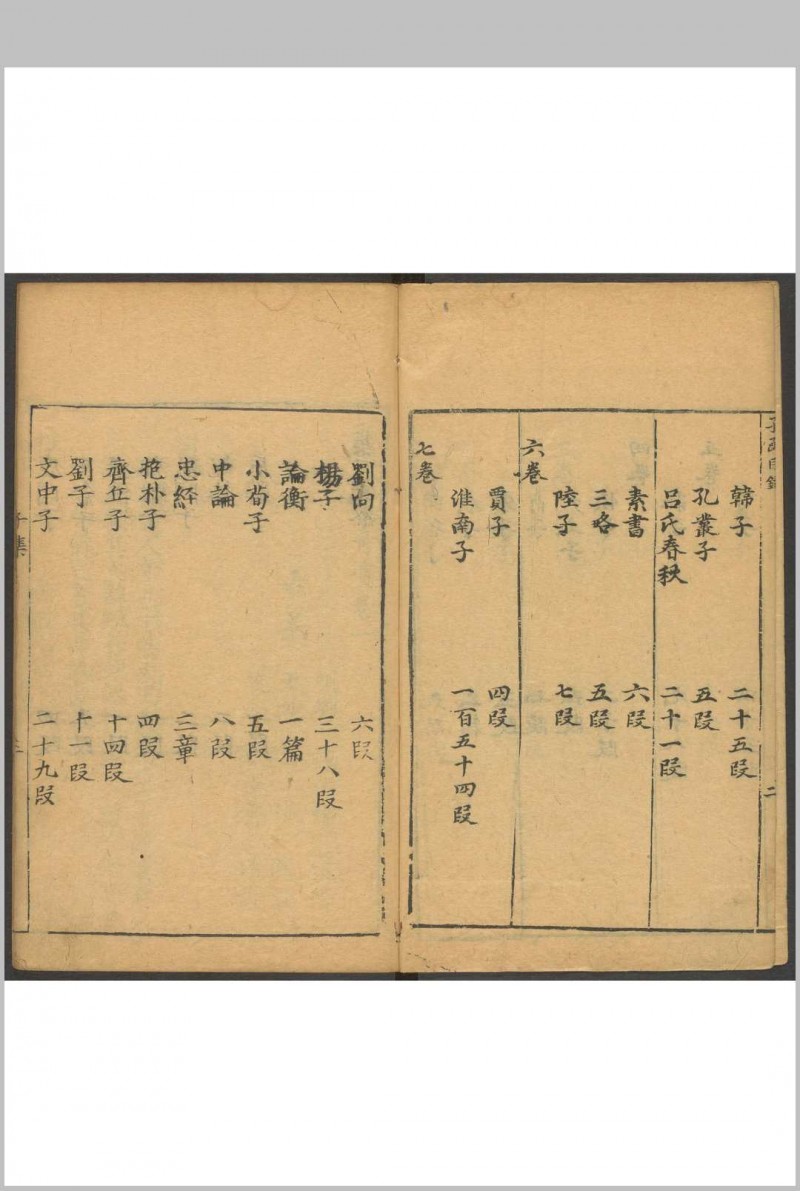 子函目錄
二
韓子 二十五段
孔叢子 五段
呂氏春秋 二十一段
素書 六段
三略 五段
陸子 七段
六卷
賈子 四段
淮南子 一百五十四段
七卷
劉向 六段
楊子 三十八段
論衡 一篇
小荀子 五段
中論 八段
忠經 三章
抱朴子 四段
齊丘子 十四段
劉子 十一段
文中子 二十九段